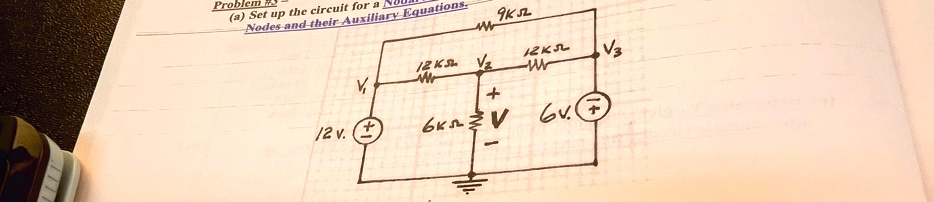 Problem #3
(a) Set up the circuit for a
Nodes and their Auxiliary Equations.
9KΩ
12KΩ V₂ 12KΩ V₃
V₁
+
12 V. + − 6KΩ V 6V. − +
−